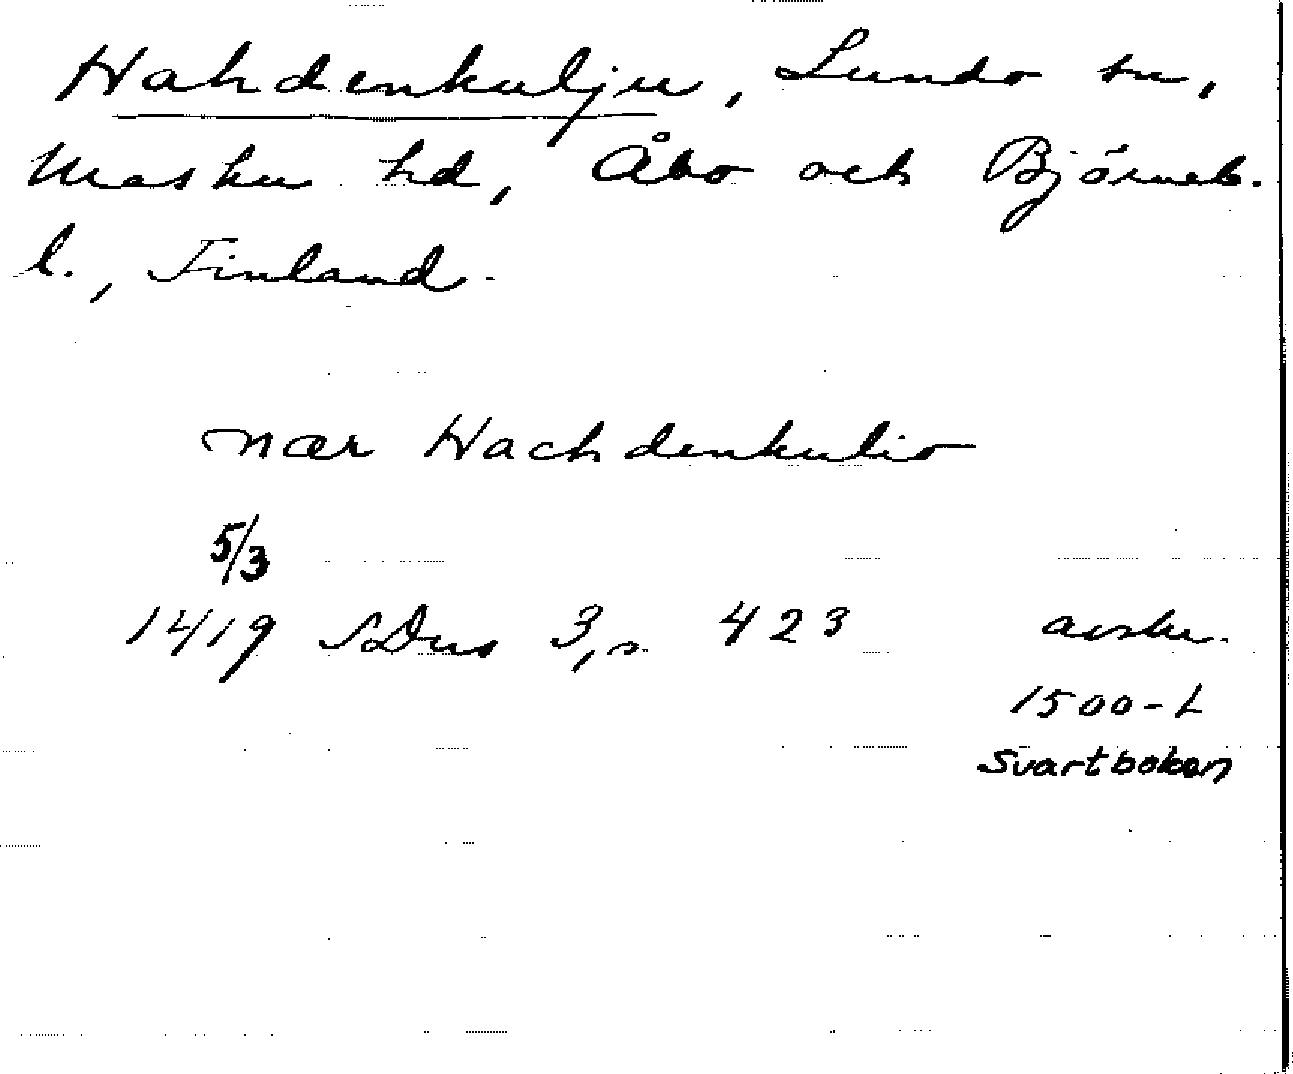 Hahdenkulju, Lundo sn,
Masku hd, Åbo och Björneb.
l., Finland.
nær Hachdenkulio
5/3
1419 SDns 3, s. 423 avskr.
1500-t
Svartboken